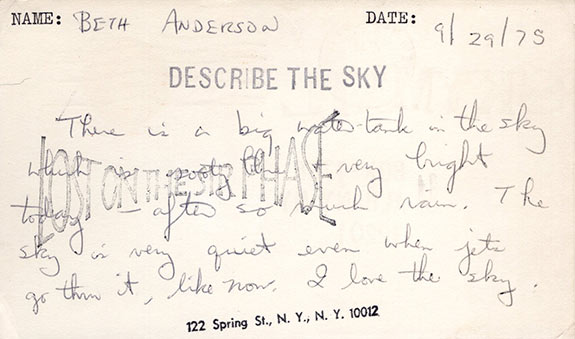 NAME: BETH ANDERSON DATE: 9/29/75
DESCRIBE THE SKY
There is a big water-tank in the sky
which is + very bright
LOST ON THE PHASE
today — after so much rain. The
sky is very quiet even when jets
go thru it, like now. I love the sky.
122 Spring St., N. Y., N. Y. 10012